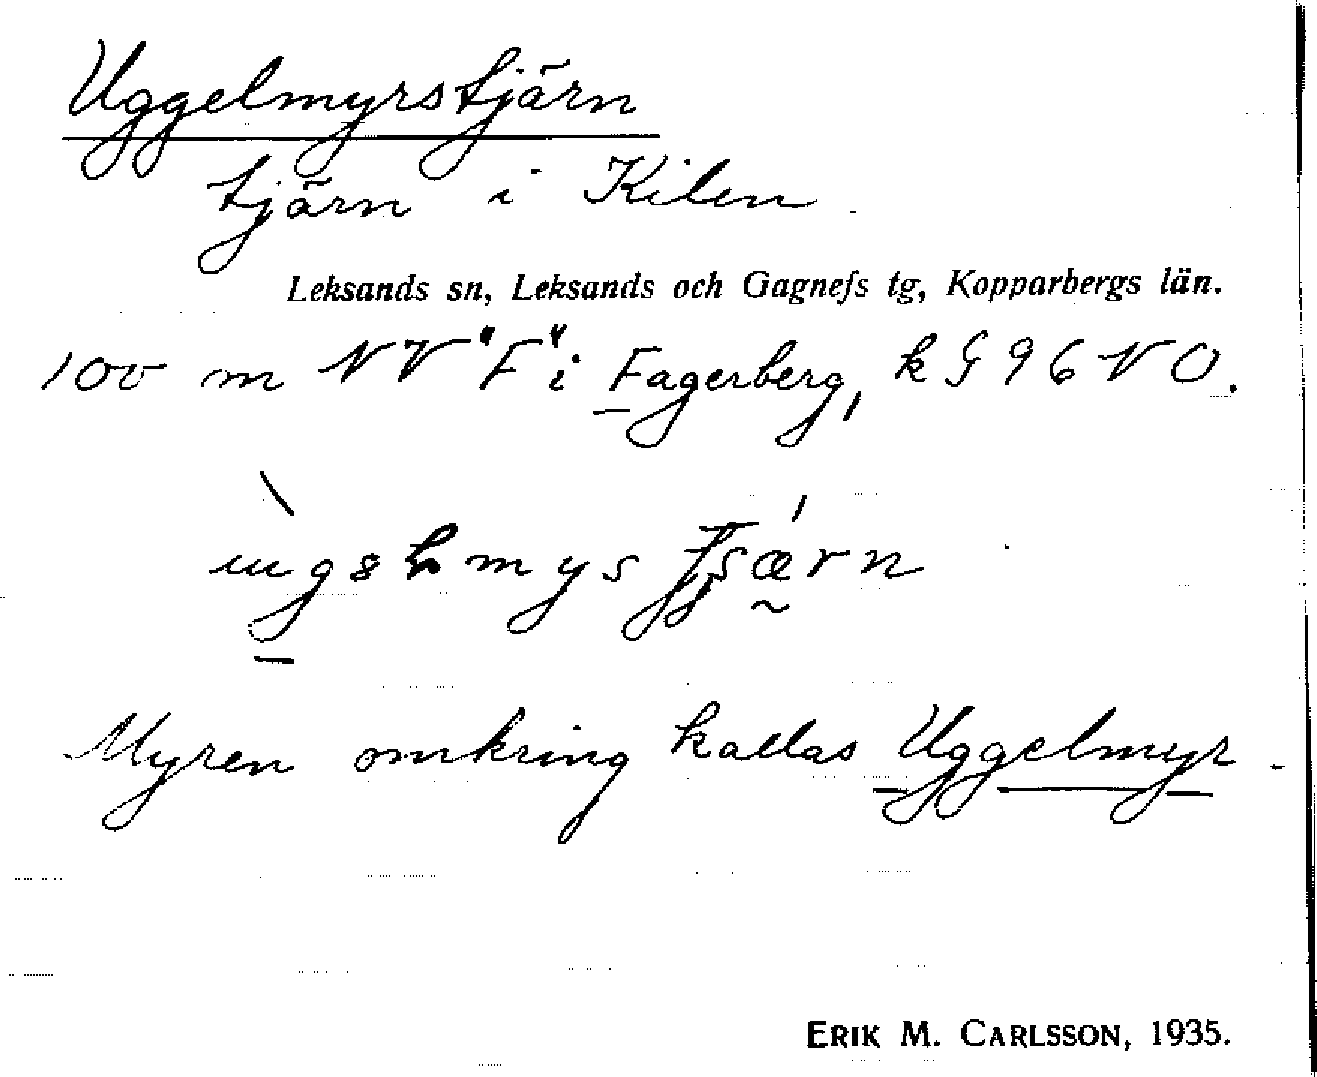 Uggelmyrstjärn
tjärn i Kilen.
Leksands sn, Leksands och Gagnefs tg, Kopparbergs län.
100 m NV "F" i Fagerberg, k G 96 NO.
Myren omkring kallas Uggelmyr.
ERIK M. CARLSSON, 1935.